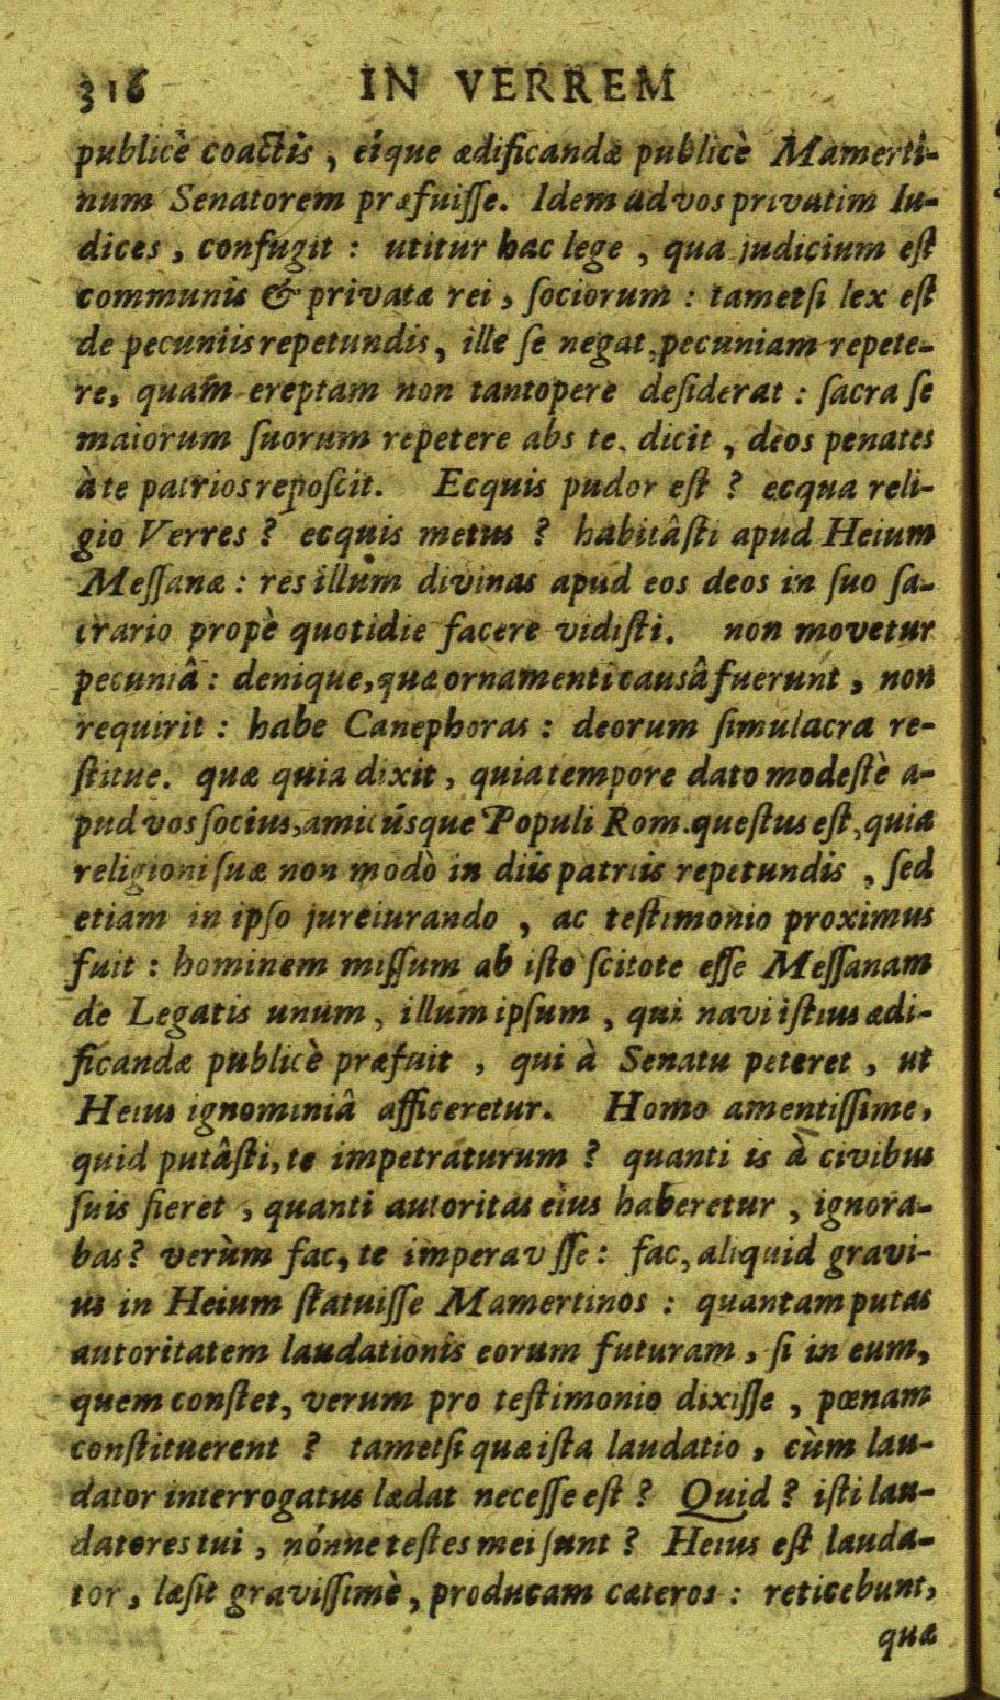 316 IN VERREM
publicè coactis, eíque ædificandæ publicè Mamerti-
num Senatorem præfuiſſe. Idem ad vos privatim Iu-
dices, confugit: utitur hac lege, qua judicium eſt
communis & privatæ rei, ſociorum: tametſi lex eſt
de pecuniis repetundis, ille ſe negat, pecuniam repete-
re, quam ereptam non tantopere deſiderat: ſacra ſe
maiorum ſuorum repetere abs te, dicit, deos penates
à te patrios repoſcit. Ecquis pudor eſt? ecqua reli-
gio Verres? ecquis metus? habitâſti apud Heium
Meſſanæ: res illum divinas apud eos deos in ſuo ſa-
crario propè quotidie facere vidiſti. non movetur
pecuniâ: denique, quæ ornamenti causâ fuerunt, non
requirit: habe Canephoras: deorum ſimulacra re-
ſtitue. quæ quia dixit, quia tempore dato modeſtè a-
pud vos ſocius, amicúsque Populi Rom. queſtus eſt, quia
religioni ſuæ non modò in diis patriis repetundis, ſed
etiam in ipſo jureiurando, ac teſtimonio proximus
fuit: hominem miſſum ab iſto ſcitote eſſe Meſſanam
de Legatis unum, illum ipſum, qui navi iſtius ædi-
ficandæ publicè præfuit, qui à Senatu peteret, ut
Heius ignominiâ afficeretur. Homo amentiſſime,
quid putâſti, te impetraturum? quanti is à civibus
ſuis fieret, quanti autoritas eius haberetur, ignora-
bas? verùm fac, te imperav ſſe: fac, aliquid gravi-
us in Heium ſtatuiſſe Mamertinos: quantam putas
autoritatem laudationis eorum futuram, ſi in eum,
quem conſtet, verum pro teſtimonio dixiſſe, pœnam
conſtituerent? tametſi quæ iſta laudatio, cùm lau-
dator interrogatus lædat neceſſe eſt? Quid? iſti lau-
datores tui, nónne teſtes mei ſunt? Heius eſt lauda-
tor, læſit graviſſimè, producam cæteros: reticebunt,
quæ